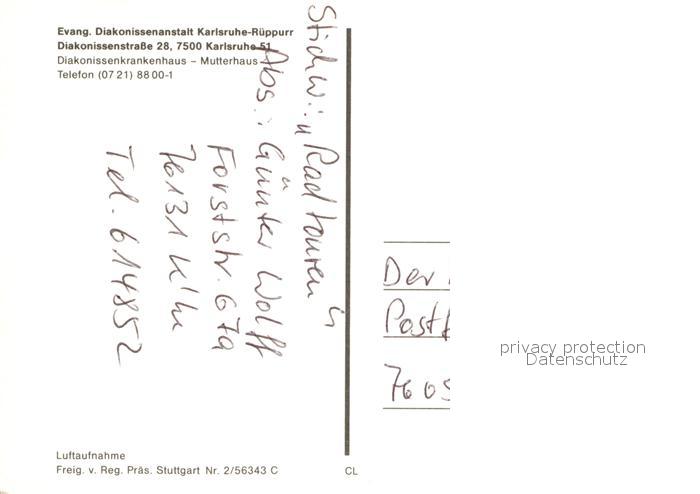 Evang. Diakonissenanstalt Karlsruhe-Rüppurr
Diakonissenstraße 28, 7500 Karlsruhe 51
Diakonissenkrankenhaus – Mutterhaus
Telefon (07 21) 88 00-1
Stichw.: "Radtouren"
Abs.: Günter Wolff
Forststr. 67a
76131 K'he
Tel. 614852
Der
Post
7605
privacy protection
Datenschutz
Luftaufnahme
Freig. v. Reg. Präs. Stuttgart Nr. 2/56343 C
CL